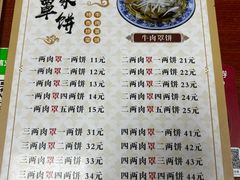 罩饼
牛肉罩饼
一两肉罩一两饼 11元
一两肉罩二两饼 12元
一两肉罩三两饼 13元
一两肉罩四两饼 14元
一两肉罩五两饼 15元
二两肉罩一两饼 21元
二两肉罩二两饼 22元
二两肉罩三两饼 23元
二两肉罩四两饼 24元
二两肉罩五两饼 25元
三两肉罩一两饼 31元
三两肉罩二两饼 32元
三两肉罩三两饼 33元
三两肉罩四两饼 34元
四两肉罩一两饼 41元
四两肉罩二两饼 42元
四两肉罩三两饼 43元
四两肉罩四两饼 44元